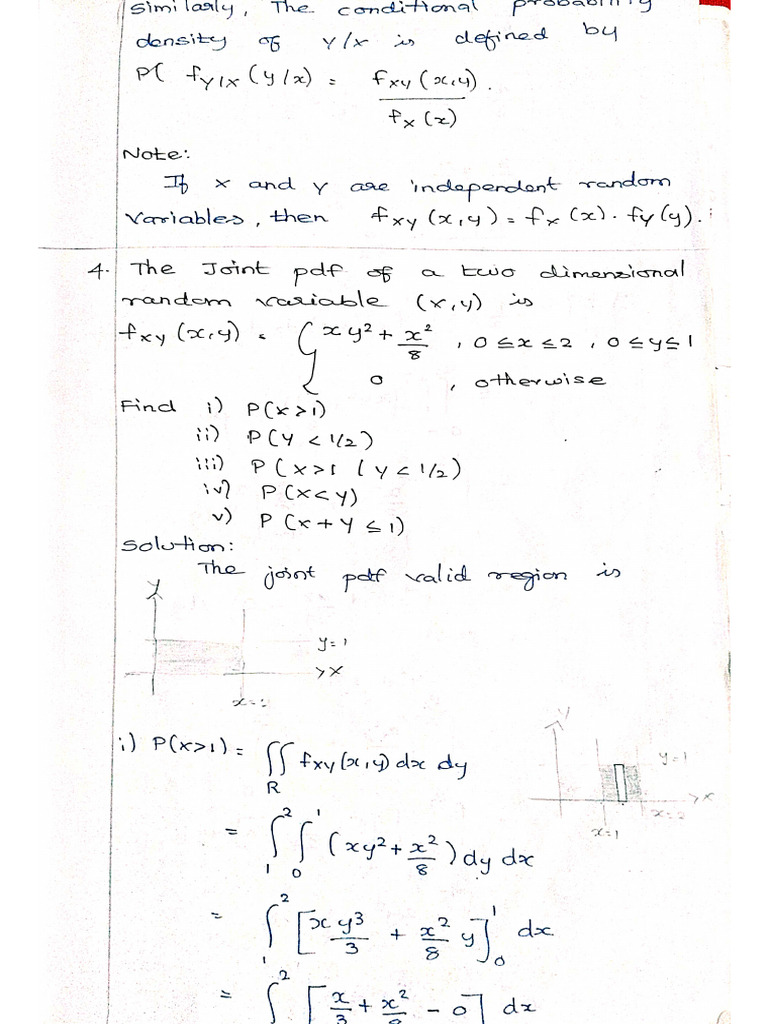 similarly, The conditional probability
density of Y/X is defined by
P( f_{Y/X}(y/x) = f_{XY}(x,y) / f_X(x).
Note:
If X and Y are independent random
variables, then f_{XY}(x,y) = f_X(x) . f_Y(y).
4. The Joint pdf of a two dimensional
random variable (X,Y) is
f_{XY}(x,y) = { xy² + x²/8 , 0 ≤ x ≤ 2 , 0 ≤ y ≤ 1
0 , otherwise
Find i) P(X>1)
ii) P(Y < 1/2)
iii) P(X>1 / Y < 1/2)
iv) P(X<Y)
v) P(X+Y ≤ 1)
Solution:
The joint pdf valid region is
Y
y=1
>X
i) P(X>1) = ∬_R f_{XY}(x,y) dx dy
Y
y=1
>X
x=2
x=1
= ∫_1^2 ∫_0^1 (xy² + x²/8) dy dx
= ∫_1^2 [x y³/3 + x²/8 y]_0^1 dx
= ∫_1^2 [x/3 + x²/8 - 0] dx